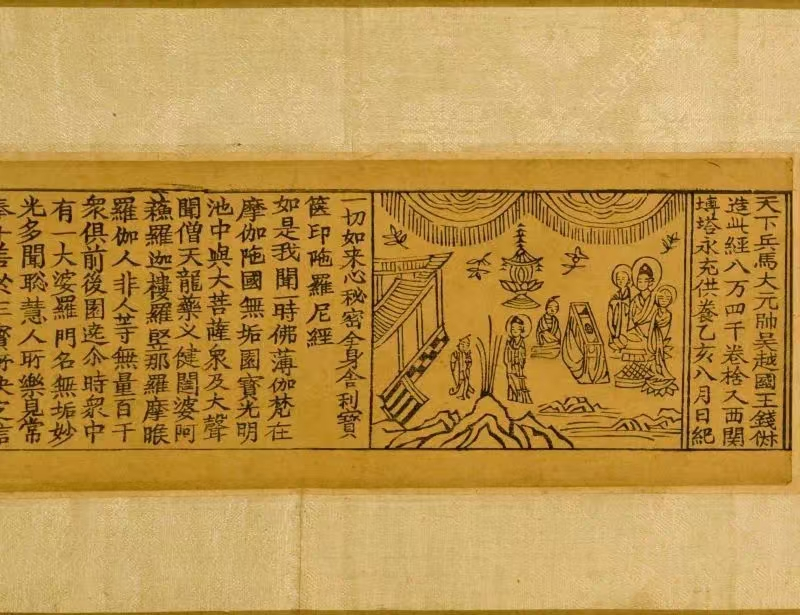 天下兵馬大元帥吳越國王錢俶
造此經八万四千卷捨入西関
塼塔永充供養乙亥八月日紀
一切如来心秘密全身舍利寶
篋印陁羅尼經
如是我聞一時佛薄伽梵在
摩伽陁國無垢園寶光明
池中與大菩薩衆及大聲
聞僧天龍藥义健闥婆阿
蘓羅迦樓羅緊那羅摩睺
羅伽人非人等無量百千
衆俱前後圍遶尒時衆中
有一大婆羅門名無垢妙
光多聞聡慧人所樂見常
奉十善於三寶所决定信